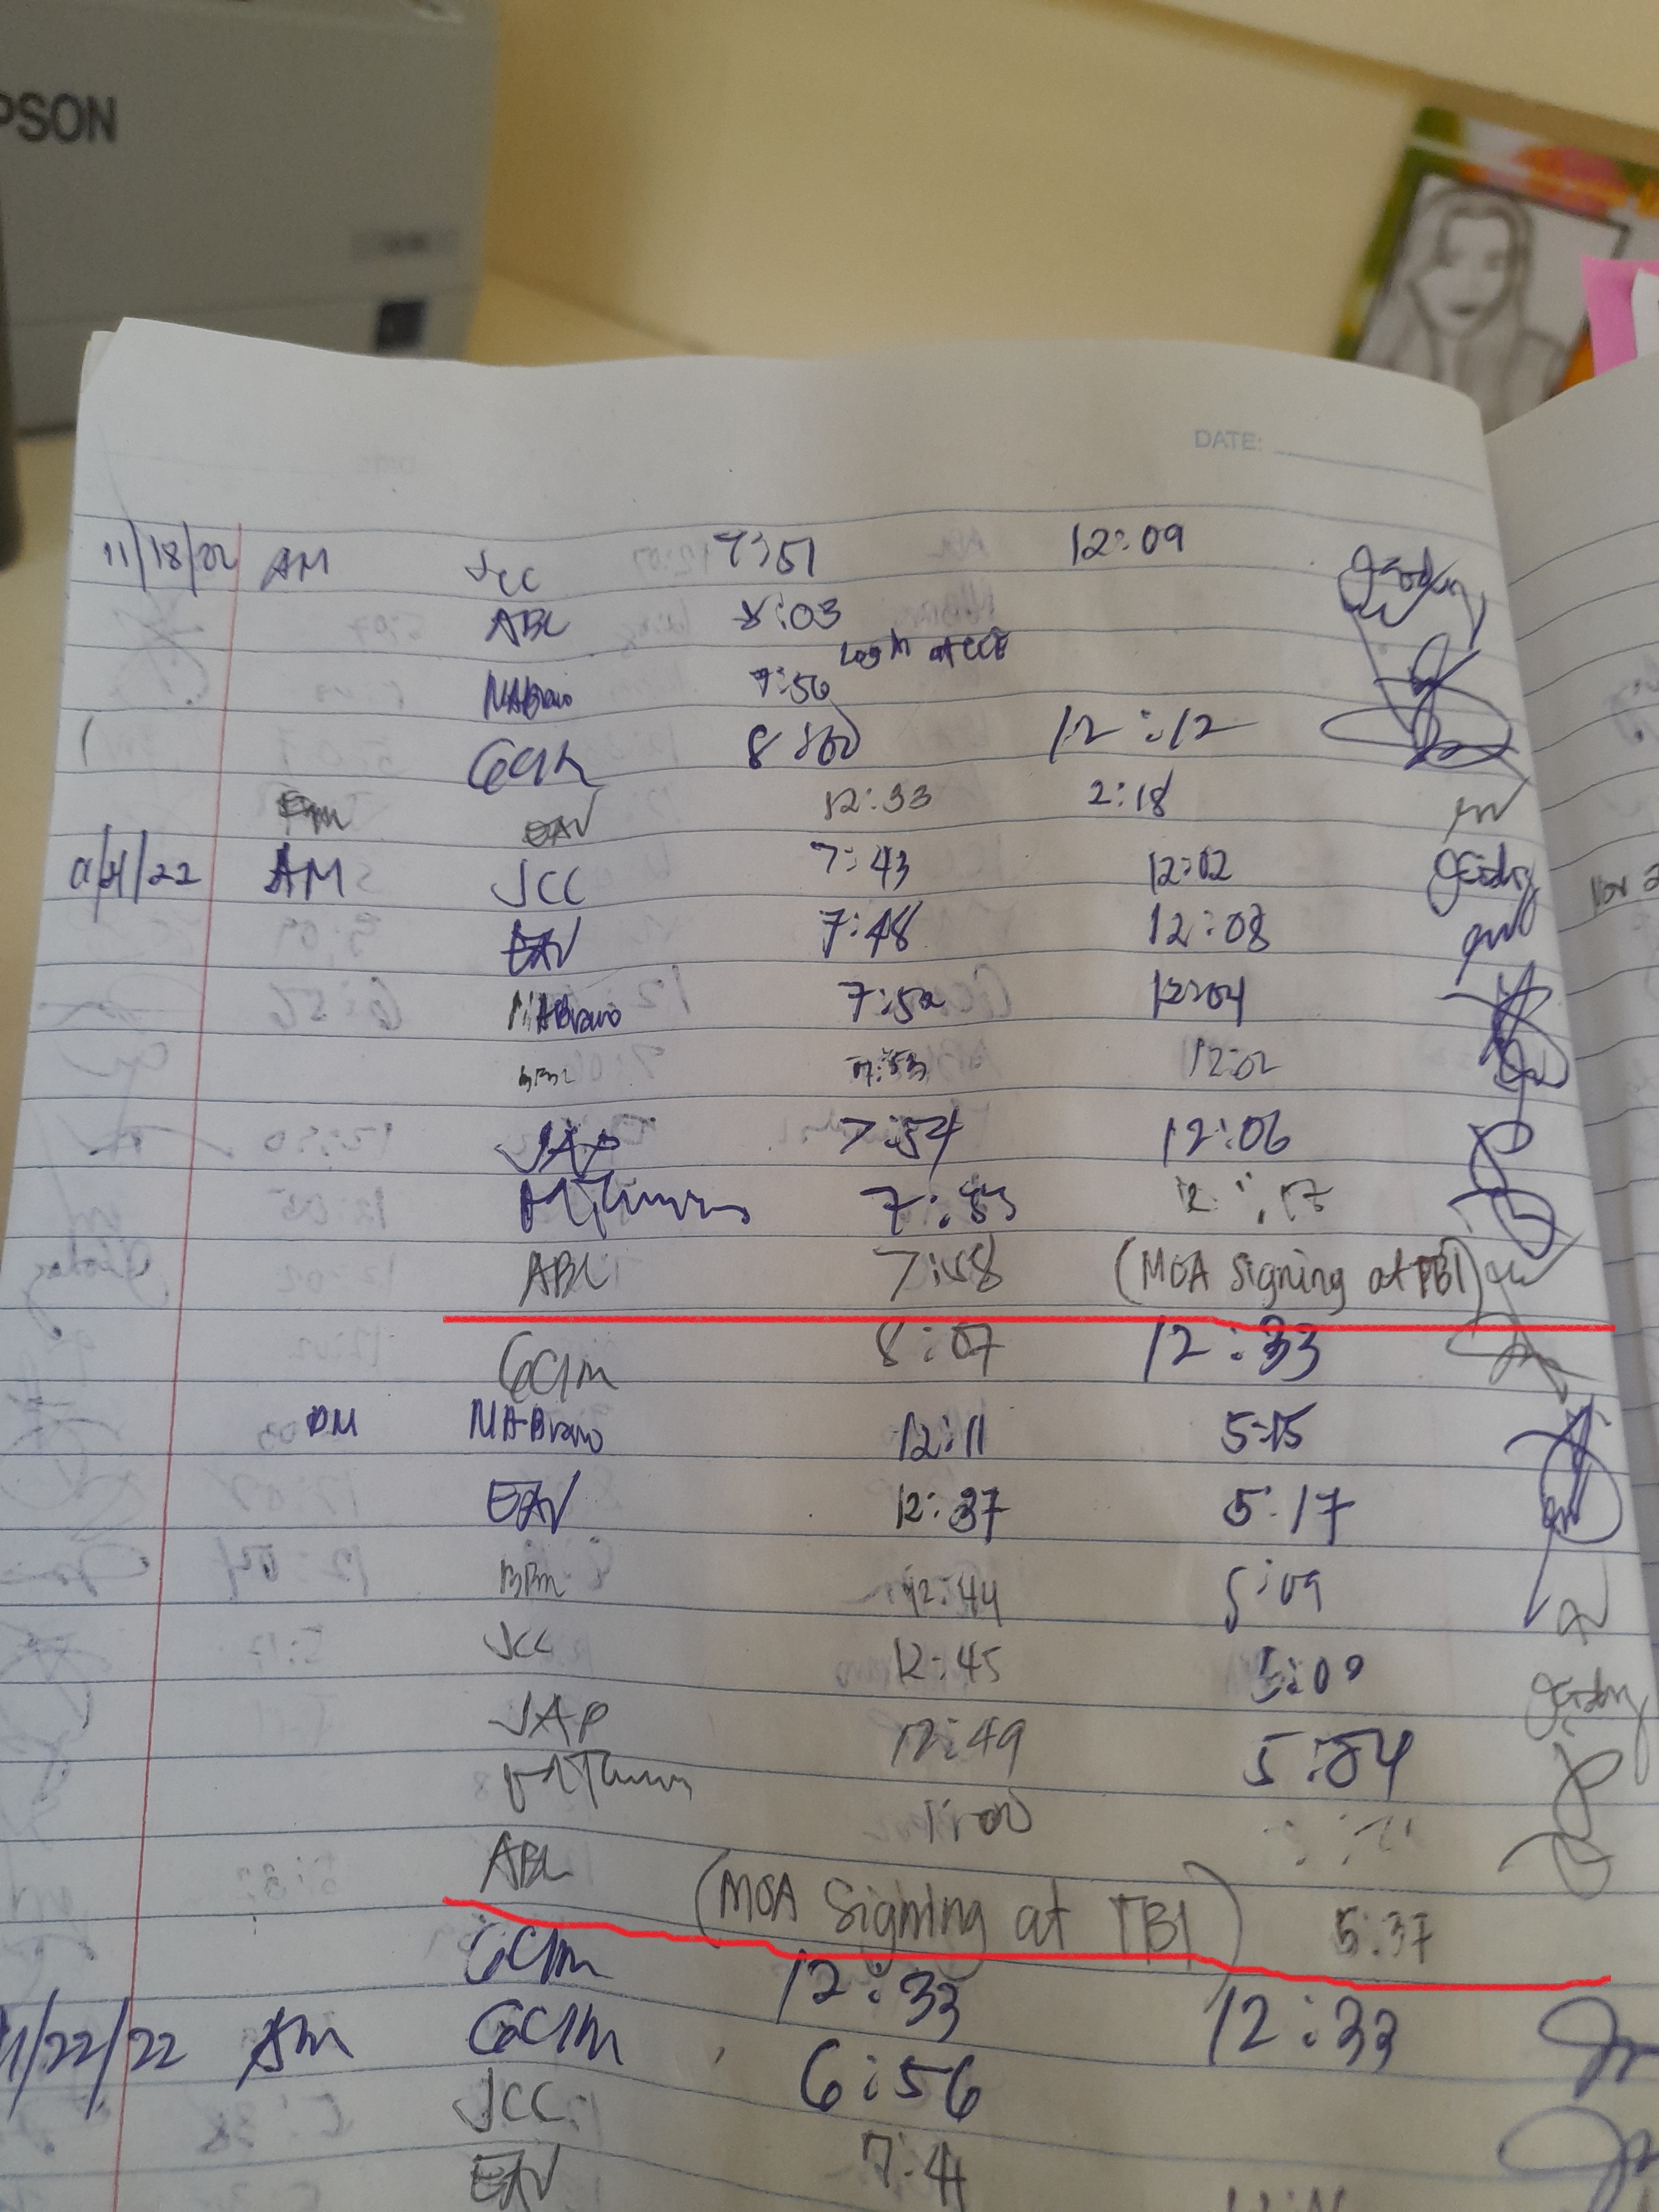 PSON
DATE:
11/18/22 AM JCC 7:51 12:09
ABL 8:03
Log in at CCE
MABravo 7:56
GCIM 8:00 12:12
EAV 12:33 2:18
AM JCC 7:43 12:02
EAV 7:48 12:08
MABravo 7:50 12:04
7:53 12:02
JAP 7:54 12:06
7:53
ABL 7:58 (MOA Signing at TBI)
GCIM 8:07 12:33
PM MABravo 12:11 5:15
EAV 12:37 5:17
12:44 5:09
JCC 12:45 5:09
JAP 12:49 5:04
1:00
ABL (MOA Signing at TBI) 5:37
GCIM 12:33 12:33
1/22/22 AM GCIM 6:56
JCC 7:41
EAV